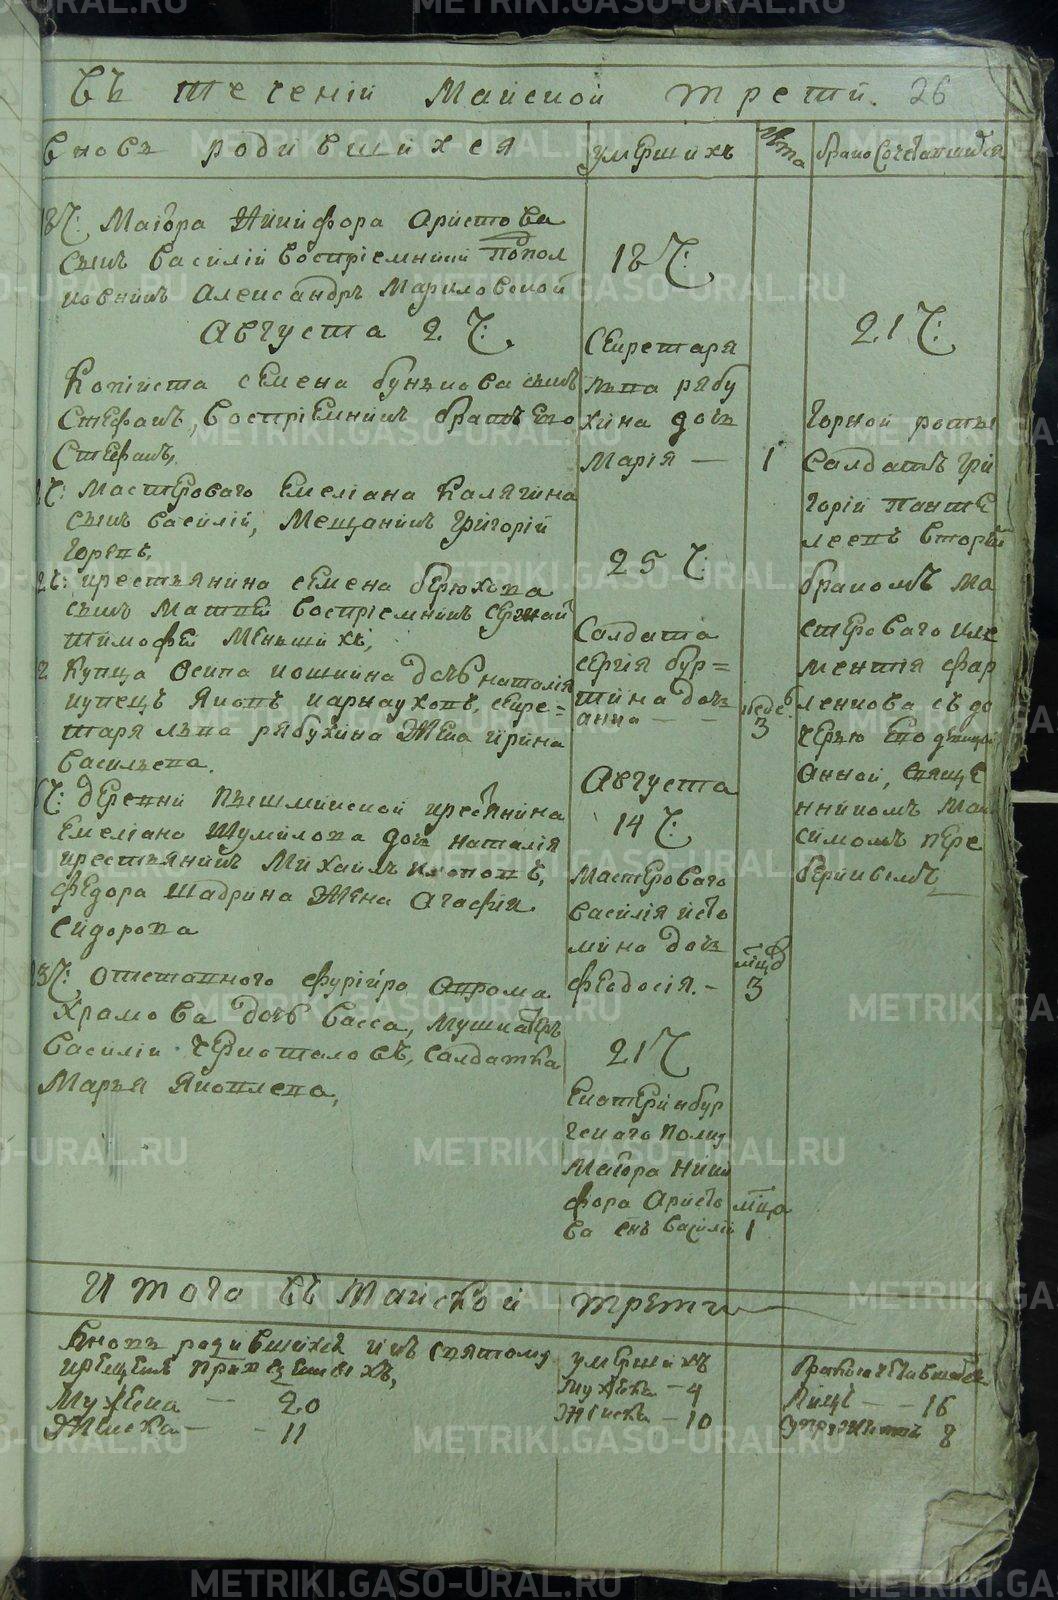 Въ теченіи Маиской трети. 26
вновь родившихся
умершихъ
лѣта
бракосочетавшихся
18 Ч: Маіора Никифора Аристова
сынъ Василій воспріемникъ подпол
ковникъ Александръ
Августа 2 Ч:
Копіиста Семена Бунькова сынъ
Стефанъ, воспріемникъ братъ ево
Стефанъ,
2 Ч: Мастероваго Емеліана Калягина
сынъ Василій, мещанинъ Григорій
2 Ч: крестьянина Семена Бѣрюхова
сынъ Матвей воспріемникъ
Тимофей Меньшихъ,
2 Купца Осипа дочь Наталія
купецъ Яковъ Карнауховъ, секре=
таря Льва Рябухина жена Ирина
Васильева.
6 Ч: деревни Пышминской крестьянина
Емеліана Шумилова дочь Наталія
крестьянинъ Михаилъ Клоповъ,
Федора Шадрина жена Агафия
Сидорова
13 Ч: отставного фуриѣра
Храмова дочь Васса, мушкатеръ
Василій Черноталовъ, салдатка
Марья Яковлева,
18 Ч:
Секретаря
Льва Рябу
хина дочь
Марія — 1
25 Ч:
Салдата
Сергія Бур=
тина дочь
Анна — — недѣ. 3
Августа
14 Ч:
Мастероваго
Василія Исто
мина дочь
Феодосія. – 3
21 Ч
Екатеринбур
гскаго полку
Маіора Ники
фора Аристо
ва снъ Василій 1
21 Ч:
Горной роты
Салдатъ Гри
горій Панте
леевъ вторымъ
бракомъ ма
стероваго Кле
ментія Фар
ленкова съ до
черью ево девицей
Анной, священ
никомъ Мак
симомъ Пере
беринымъ
Итого въ Маиской трети
Вновь родившихся и къ святому
крещенію принесенныхъ,
Мужеска — 20
Женска — – 11
умершихъ
мужеска – 4
женска – 10
бракосочетавшихся
Лицъ — – 16
супружествъ 8